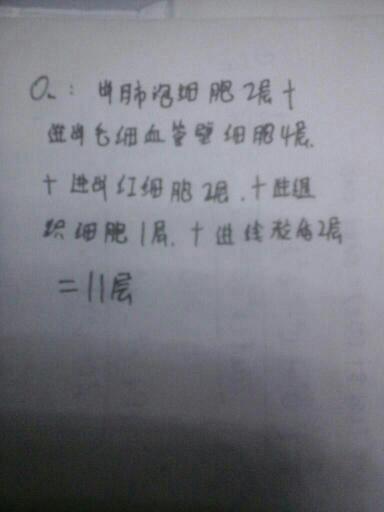 O₂：出肺泡细胞2层+
进出毛细血管壁细胞4层.
+进出红细胞2层.+进组
织细胞1层.+进线粒体2层
=11层